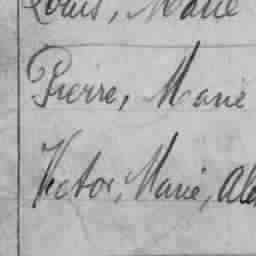 Louis, Marie
Pierre, Marie
Victor, Marie, Ale